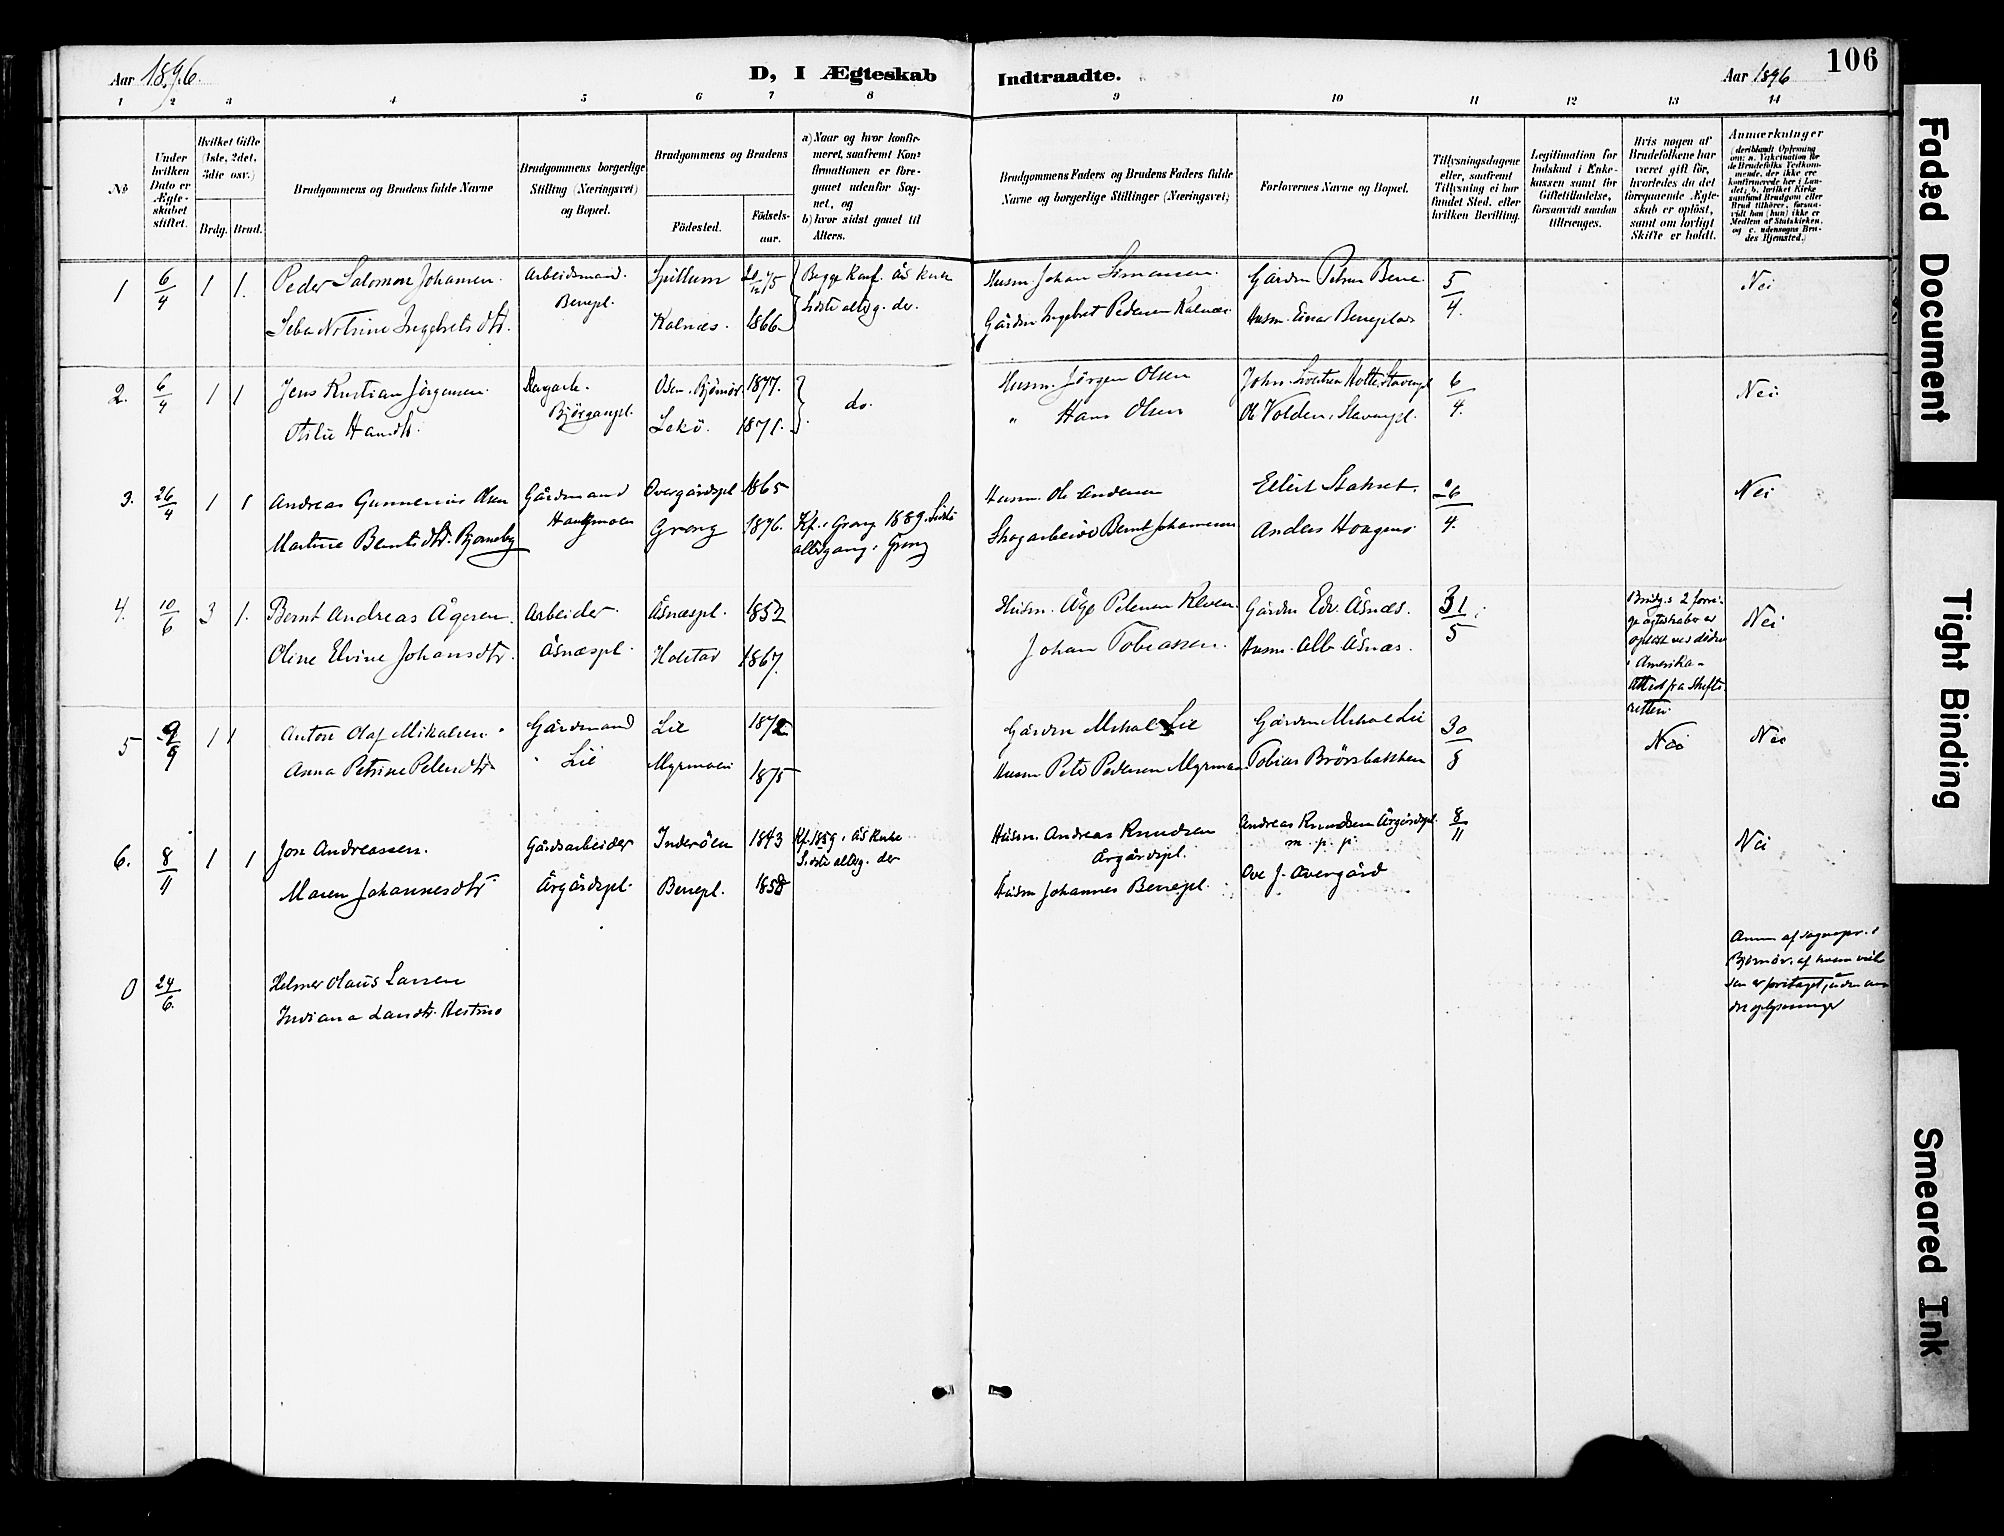 Aar 1896.
D, I Ægteskab
Indtraadte.
Aar 1896
106
1 2 3 4 5 6 7 8 9 10 11 12 13 14
№
Under hvilken Dato er Ægteskabet stiftet.
Hvilket Gifte (1ste, 2det, 3die osv.)
Brdg. Brud.
Brudgommens og Brudens fulde Navne
Brudgommens borgerlige Stilling (Næringsvei) og Bopæl.
Brudgommens og Brudens
Födested.
Födselsaar.
a) Naar og hvor konfirmeret, saafremt Konfirmationen er foregaaet udenfor Sognet, og
b) hvor sidst gaaet til Alters.
Brudgommens Faders og Brudens Faders fulde Navne og borgerlige Stillinger (Næringsvei)
Forlovernes Navne og Bopæl.
Tillysningsdagene eller, saafremt Tillysning ei har fundet Sted, efter hvilken Bevilling.
Legitimation for Indskud i Enkekassen samt for Giftetilladelse, forsaavidt saadan tiltrænges.
Hvis nogen af Brudefolkene har været gift för, hvorledes da det foregaaende Ægteskab er oplöst, samt om lovligt Skifte er holdt.
Anmærkninger
1 6/4 1 1. Peder Salomon Johansen. Arbeidsmand. Spillum Begge Konf. Ås Kirke Husm. Johan Simonsen. Gårdm Petrus Bene 5/4. Nei
Ingebretsdtr. Benepl. Kalnæs. 1866 Sidste altág. der. Gårdm Ingebret Pedersen Kalnæs. Husm. Einar Beneplads
2. 6/4 1 1 Jens Kristian Jörgensen. Björganpl. Osen. Björnör 1877. do. Husm. Jörgen Olsen 6/4. Nei
Otilie Hansdtr. Lekö. 1871. " Hans Olsen Ole Volden, Stavenpl.
3. 26/4 1 1 Andreas Gunnerius Olsen Gårdmand Overgårdspl 1865 Husm. Ole Andersen 26/4. Nei
Martine Berntsdtr. Bjørneby Grong 1876. Kf. i Grong 1889. Sidste altergang i Grong Skogarbeider Bernt Johannesen
4. 10/6 3 1. Bernt Andreas Ågesen. Arbeider Åsnæspl. 1852 Husm. Åge Petersen Kleven. Gårdm Edv. Åsnæs. 31/5 Brudg.s 2 forrige ægteskaber er opløst ved døden i Amerika. Attest fra Skifteretten. Nei
Oline Elvine Johansdtr. Åsnæspl. Holstad 1867. Johan Tobiassen. Husm. Alb. Åsnæs.
5 9/9 1 1 Anton Olaf Mikalsen. Gårdmand Lie 1872 Gårdm Mikal Lie Gårdm Mikal Lie 30/8 Nei Nei
Anna Petrine Petersdtr. Lie Myrmoen 1875 Husm Peter Pedersen Myrmoen Tobias Brörsbakken
6. 8/11 1 1 Jon Andreassen. Gårdsarbeider Inderöen 1843 Kf. 1859 i Ås Kirke Husm. Andreas Knudsen Årgårdspl. Andreas Knudsen Årgårdspl. m. p. p. 8/11 Nei
Maren Johannesdtr Årgårdspl. Benepl. 1858 Sidste altág. der Husm Johannes Benepl. Ove J. Overgård
0 24/6. Helmer Olaus Larsen
Indiana Larsdtr. Hestmo
Anm. af sognepr. i Björnör, af hvem vielsen er foretaget, uden andre oplysninger
Faded Document
Tight Binding
Smeared Ink